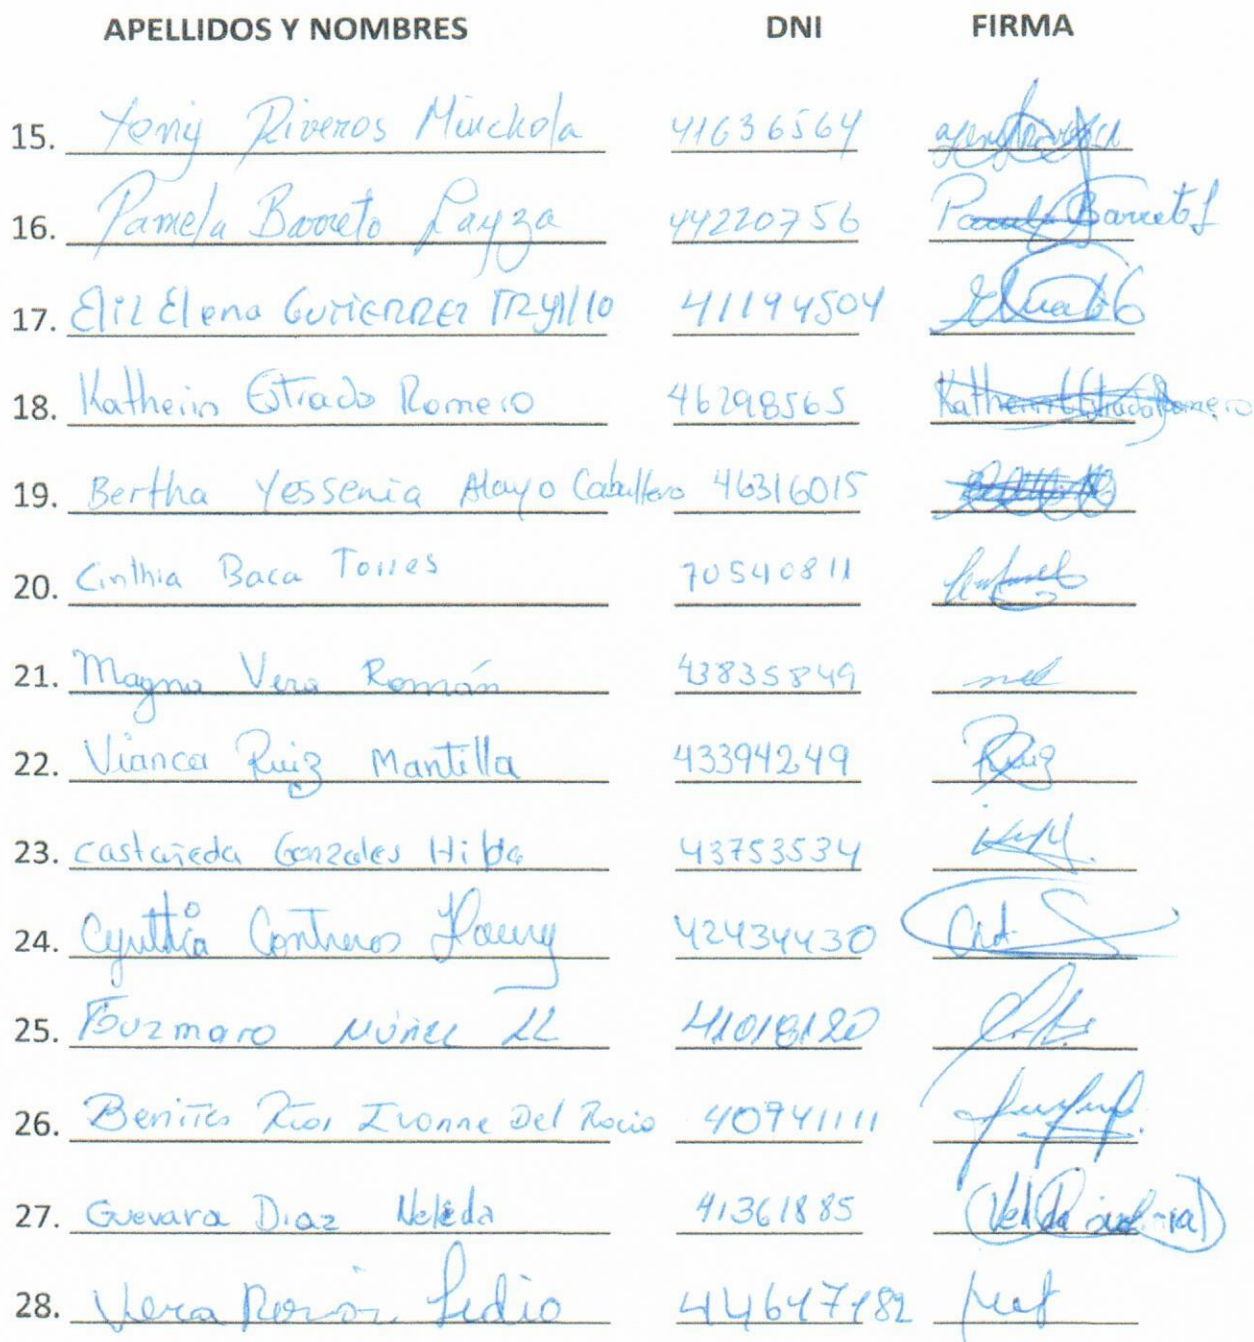 APELLIDOS Y NOMBRES DNI FIRMA
15. Yeniy Riveros Minchola 41636564
16. Pamela Barreto Layza 44220756 Barreto L
17. Eliz Elena GUTIERREZ 41194504
18. Katherin Estrada Romero 46298565 Katherin Estrada Romero
19. Bertha Yessenia Alayo Caballero 46316015
20. Cinthia Baca Torres 70540811
21. Magna Vera Román 43835849
22. Vianca Ruiz Mantilla 43394249 Ruiz
23. Castañeda Gonzales Hilda 43753534
24. Cynthia Contreras 42434430
25. Núñez 41018120
26. Benites Rios Ivonne Del Rocio 40741111
27. Guevara Diaz Neleda 41361885
28. Vera Lidio